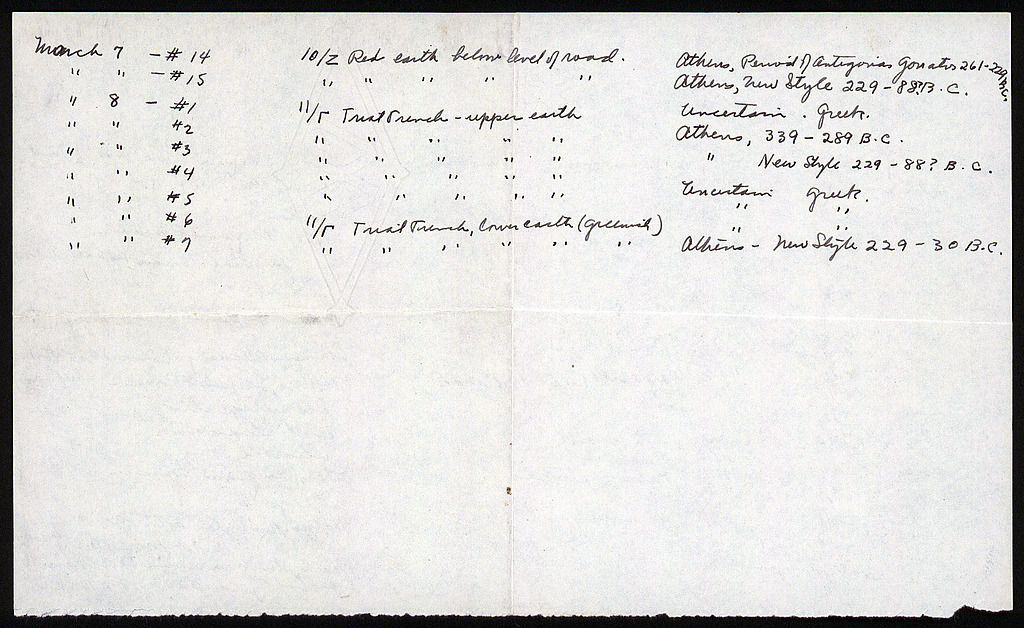 March 7 - #14 10/Z Red earth below level of road. Athens, Period of Antigonas Gonatas 261-229 B.C.
" " - #15 " " " " " Athens, New Style 229-88? B.C.
" 8 - #1 11/Γ Trial Trench - upper earth Uncertain. Greek.
" " #2 " " " " " Athens, 339-289 B.C.
" " #3 " " " " " " New Style 229-88? B.C.
" " #4 " " " " " Uncertain Greek.
" " #5 " " " " " " "
" " #6 11/Γ Trial Trench, Lower earth (Greenish) " "
" " #7 " " " " " " Athens - New Style 229-30 B.C.